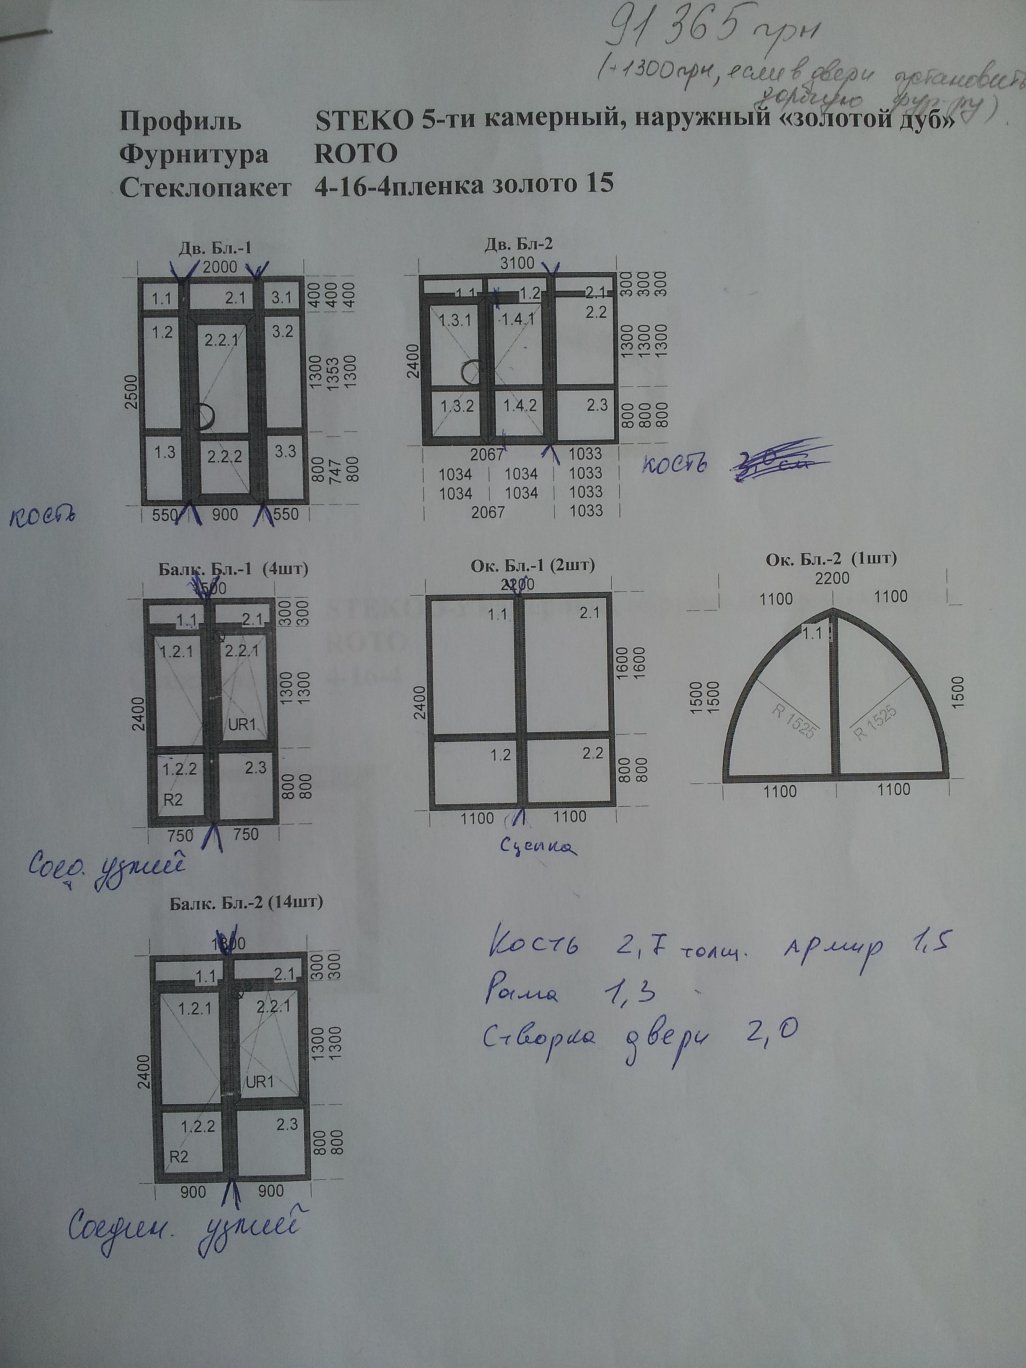 91 365 грн
(+1300грн, если в двери установить
дорогую фур-ру)
Профиль STEKO 5-ти камерный, наружный «золотой дуб»
Фурнитура ROTO
Стеклопакет 4-16-4пленка золото 15
Дв. Бл.-1
2000
1.1 2.1 3.1
400 400 400
1.2 2.2.1 3.2
2500
1300 1353 1300
1.3 2.2.2 3.3
800 747 800
550 900 550
кость
Дв. Бл-2
3100
1.1 1.2 2.1
300 300 300
1.3.1 1.4.1 2.2
2400
1300 1300 1300
1.3.2 1.4.2 2.3
800 800 800
2067 1033
1034 1034 1033
1034 1034 1033
2067 1033
кость
Балк. Бл.-1 (4шт)
1500
1.1 2.1
300 300
1.2.1 2.2.1
2400
1300 1300
UR1
1.2.2 2.3
R2
800 800
750 750
Соед. узкий
Ок. Бл.-1 (2шт)
2200
1.1 2.1
2400
1600 1600
1.2 2.2
800 800
1100 1100
Сцепка
Ок. Бл.-2 (1шт)
2200
1100 1100
1.1
1500 1500
R 1525 R 1525
1500
1100 1100
Балк. Бл.-2 (14шт)
1800
1.1 2.1
300 300
1.2.1 2.2.1
2400
1300 1300
UR1
1.2.2 2.3
R2
800 800
900 900
Соедин. узкий
Кость 2,7 толщ. армир 1,5
Рама 1,3
Створка двери 2,0